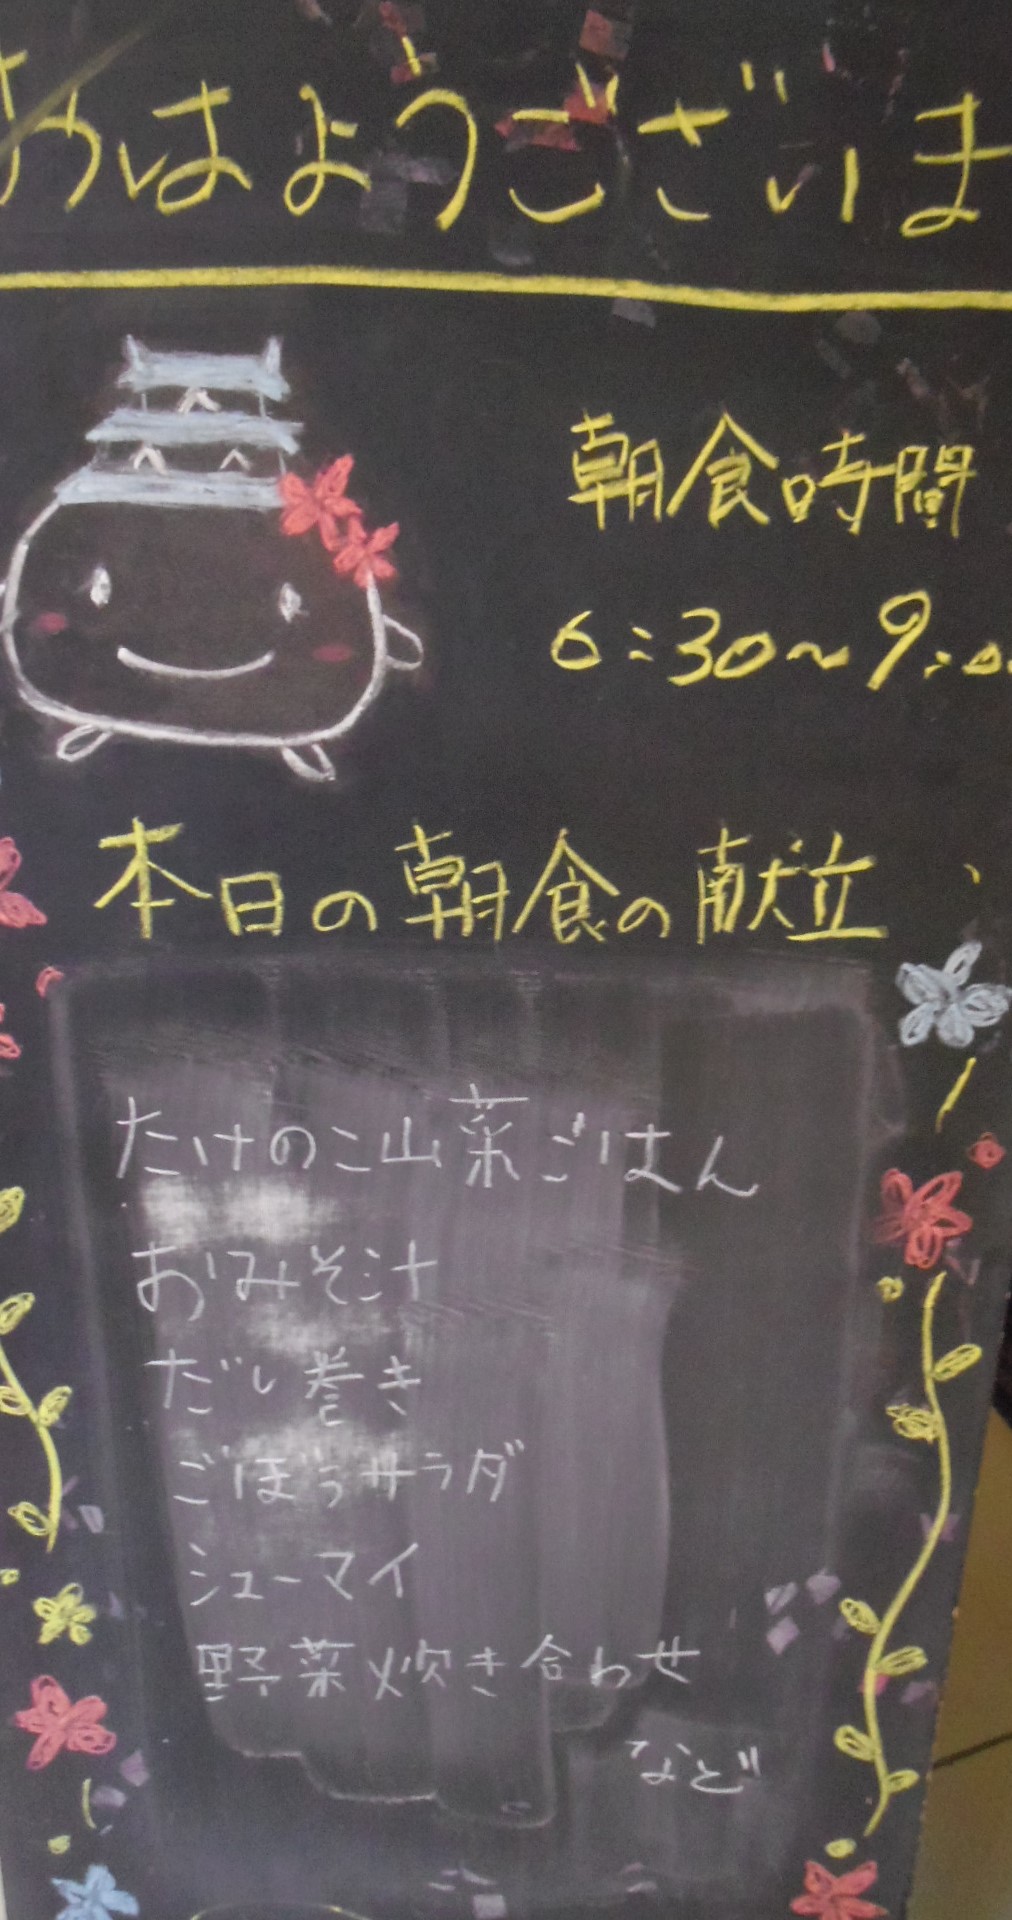 おはようございま
朝食時間
6:30~9:00
本日の朝食の献立
たけのこ山菜ごはん
おみそ汁
だし巻き
ごぼうサラダ
シューマイ
野菜炊き合わせ
など